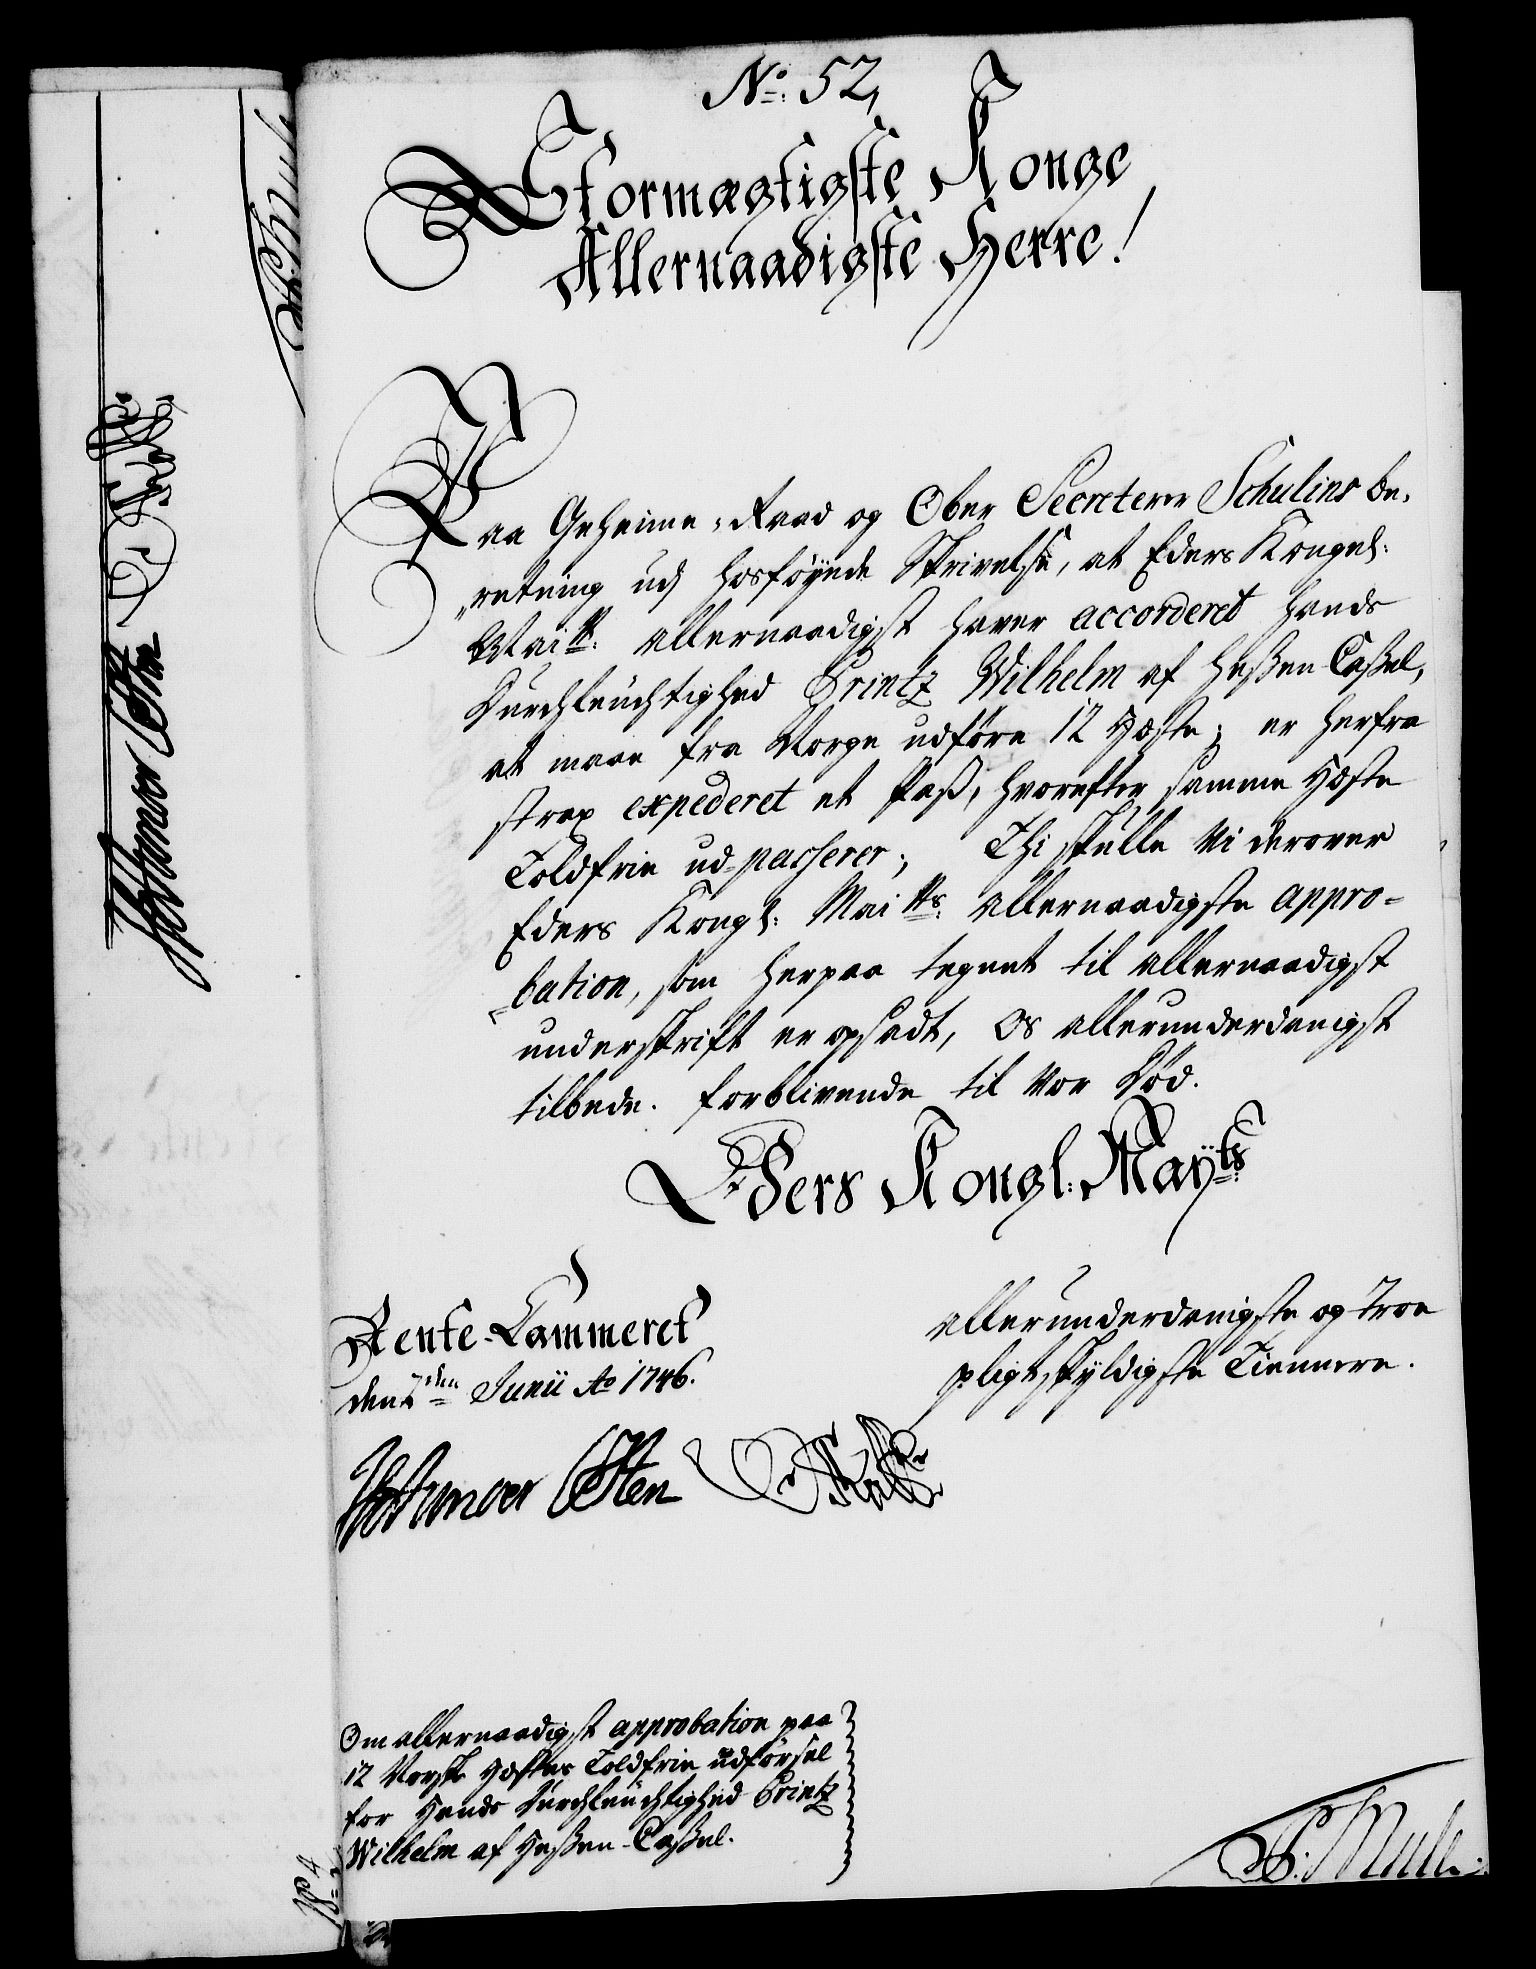 No: 52,
Stormægtigste Konge
Allernaadigste Herre!
Paa Geheime-Raad og Ober Secreterer Schulins be-
retning udj hosföyede Skrivelse, at Eders Kongel:
Maitt: allernaadigst haver accorderet Hands
Durchleuchtighed Printz Wilhelm af Hessen-Cassel,
at maae fra Norge udföre 12 Hæste; er herfra
strax expederet et Pass, hvorefter samme Hæste
Toldfrie ud-passerer; Thi skulle Vi derover
Eders Kongl: Maitts: Allernaadigste appro-
bation, som herpaa tegnet til allernaadigst
underskrift er opsadt, os allerunderdanigst
tilbede. forblivende til vor Död.
Eders Kongl: Mayts:
Rente-Cammeret
den 7den Junii Ao 1746.
allerunderdanigste og troe
pligtskyldigste Tiennere.
Om allernaadigst approbation paa
12 Norske Hæstes Toldfrie udförsel
for Hands Durchleuchtighed Printz
Wilhelm af Hessen-Cassel.